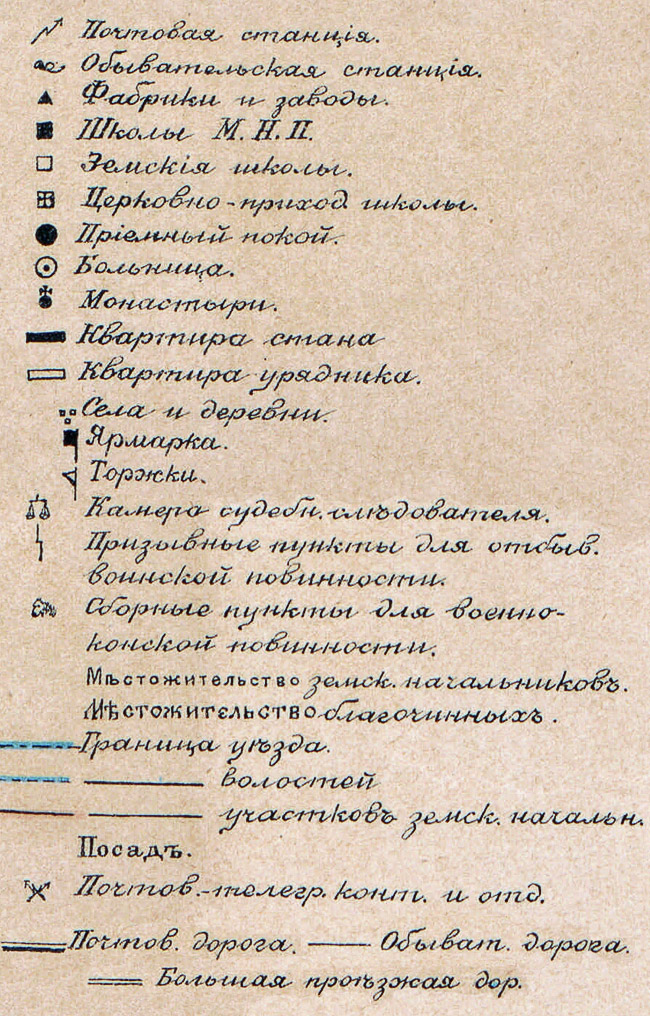 Почтовая станція.
Обывательская станція.
Фабрики и заводы.
Школы М. Н. П.
Земскія школы.
Церковно-приход. школы.
Пріемный покой.
Больница.
Монастыри.
Квартира стана
Квартира урядника.
Села и деревни.
Ярмарка.
Торжки.
Камера судебн. слѣдователя.
Призывные пункты для отбыв.
воинской повинности.
Сборные пункты для военно-
конской повинности.
Мѣстожительство земск. начальниковъ.
Мѣстожительство благочинныхъ.
Граница уѣзда.
волостей
участковъ земск. начальн.
Посадъ.
Почтов.-телегр. конт. и отд.
Почтов. дорога. Обыват. дорога.
Большая проѣзжая дор.